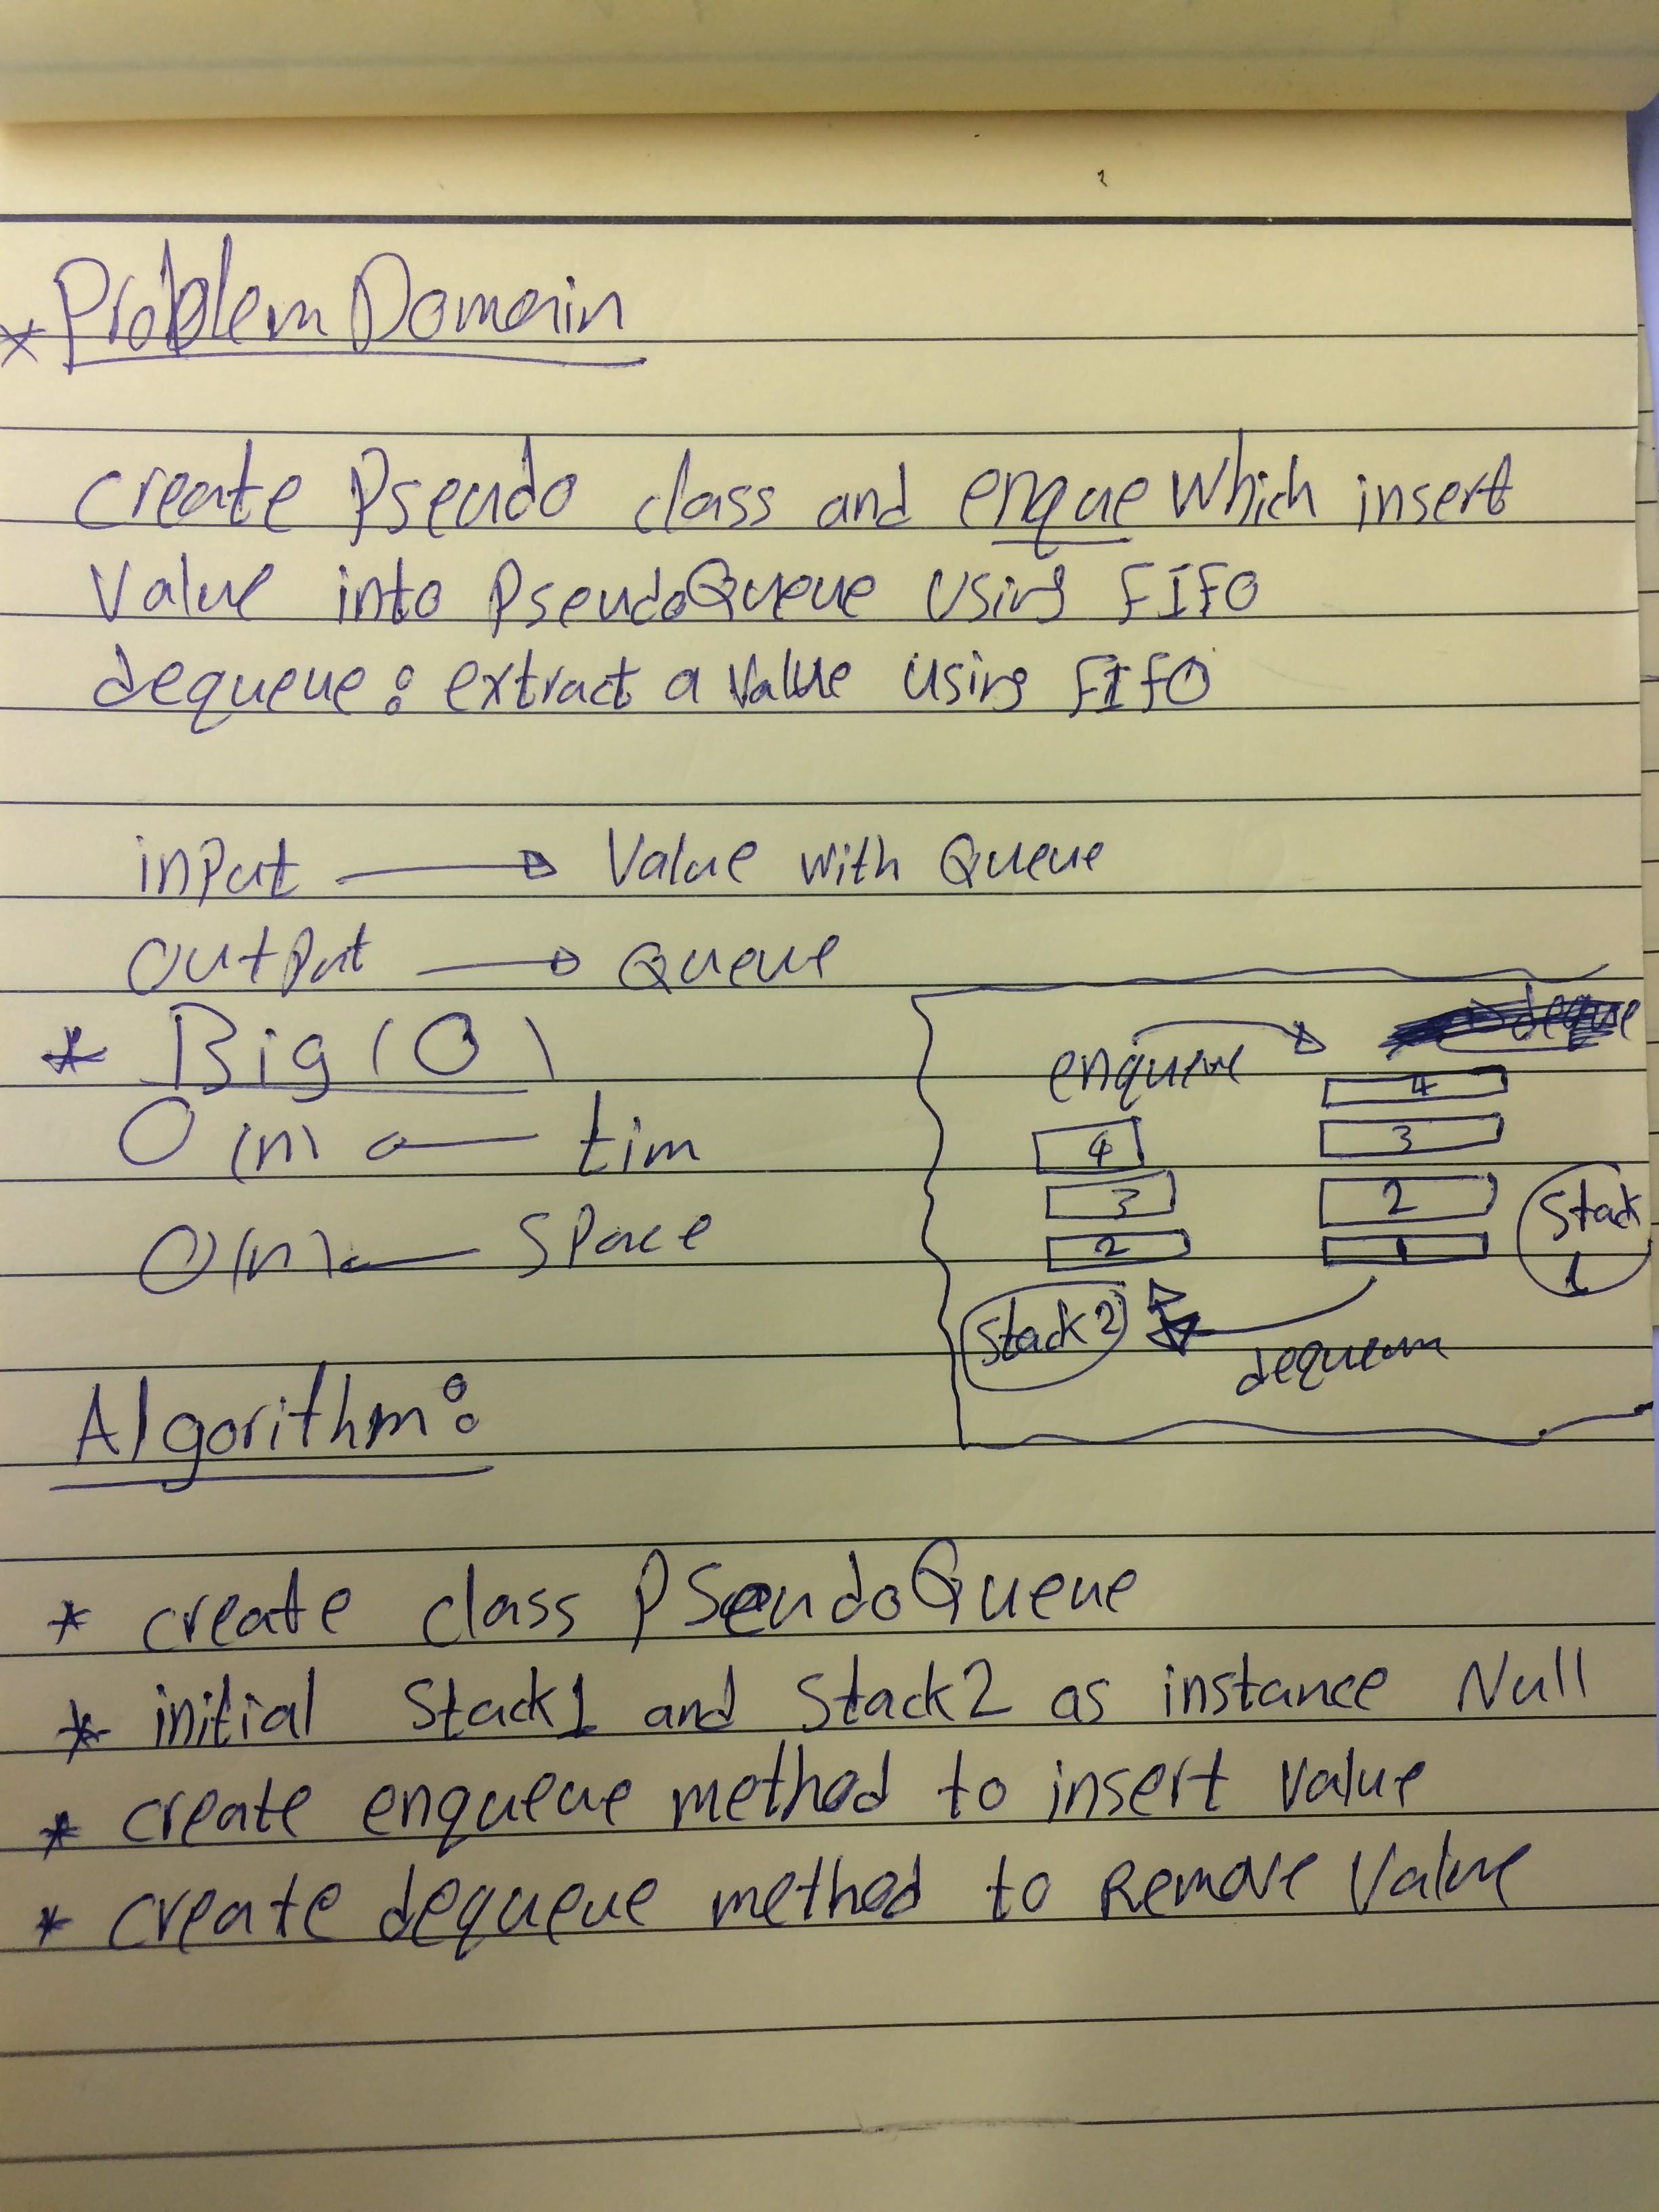 * Problem Domain
create Pseudo class and enque which insert
Value into PseudoQueue Using FIFO
dequeue: extract a Value Using FIFO
input → Value with Queue
output → Queue
* Big (O)
O(n) ← tim
O(n) ← Space
enqueue
4
3
2
Stack2
4
3
2
1
Stack
1
Algorithm:
* create class PSeudoQueue
* initial Stack1 and Stack2 as instance Null
* create enqueue method to insert Value
* create dequeue method to Remove Value